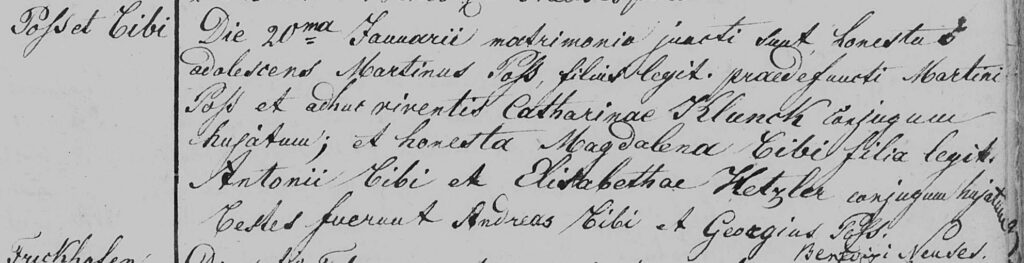 Poss et Tibi
Die 20ma Januarii matrimonio juncti sunt, honestus
adolescens Martinus Poss, filius legit. praedefuncti Martini
Poss et adhuc viventis Catharinae Klunck conjugum
hujatum; et honesta Magdalena Tibi filia legit.
Antonii Tibi et Elisabethae Hetzler conjugum hujatum
Testes fuerunt Andreas Tibi et Georgius Poss.
Neuses.
Frickhofen